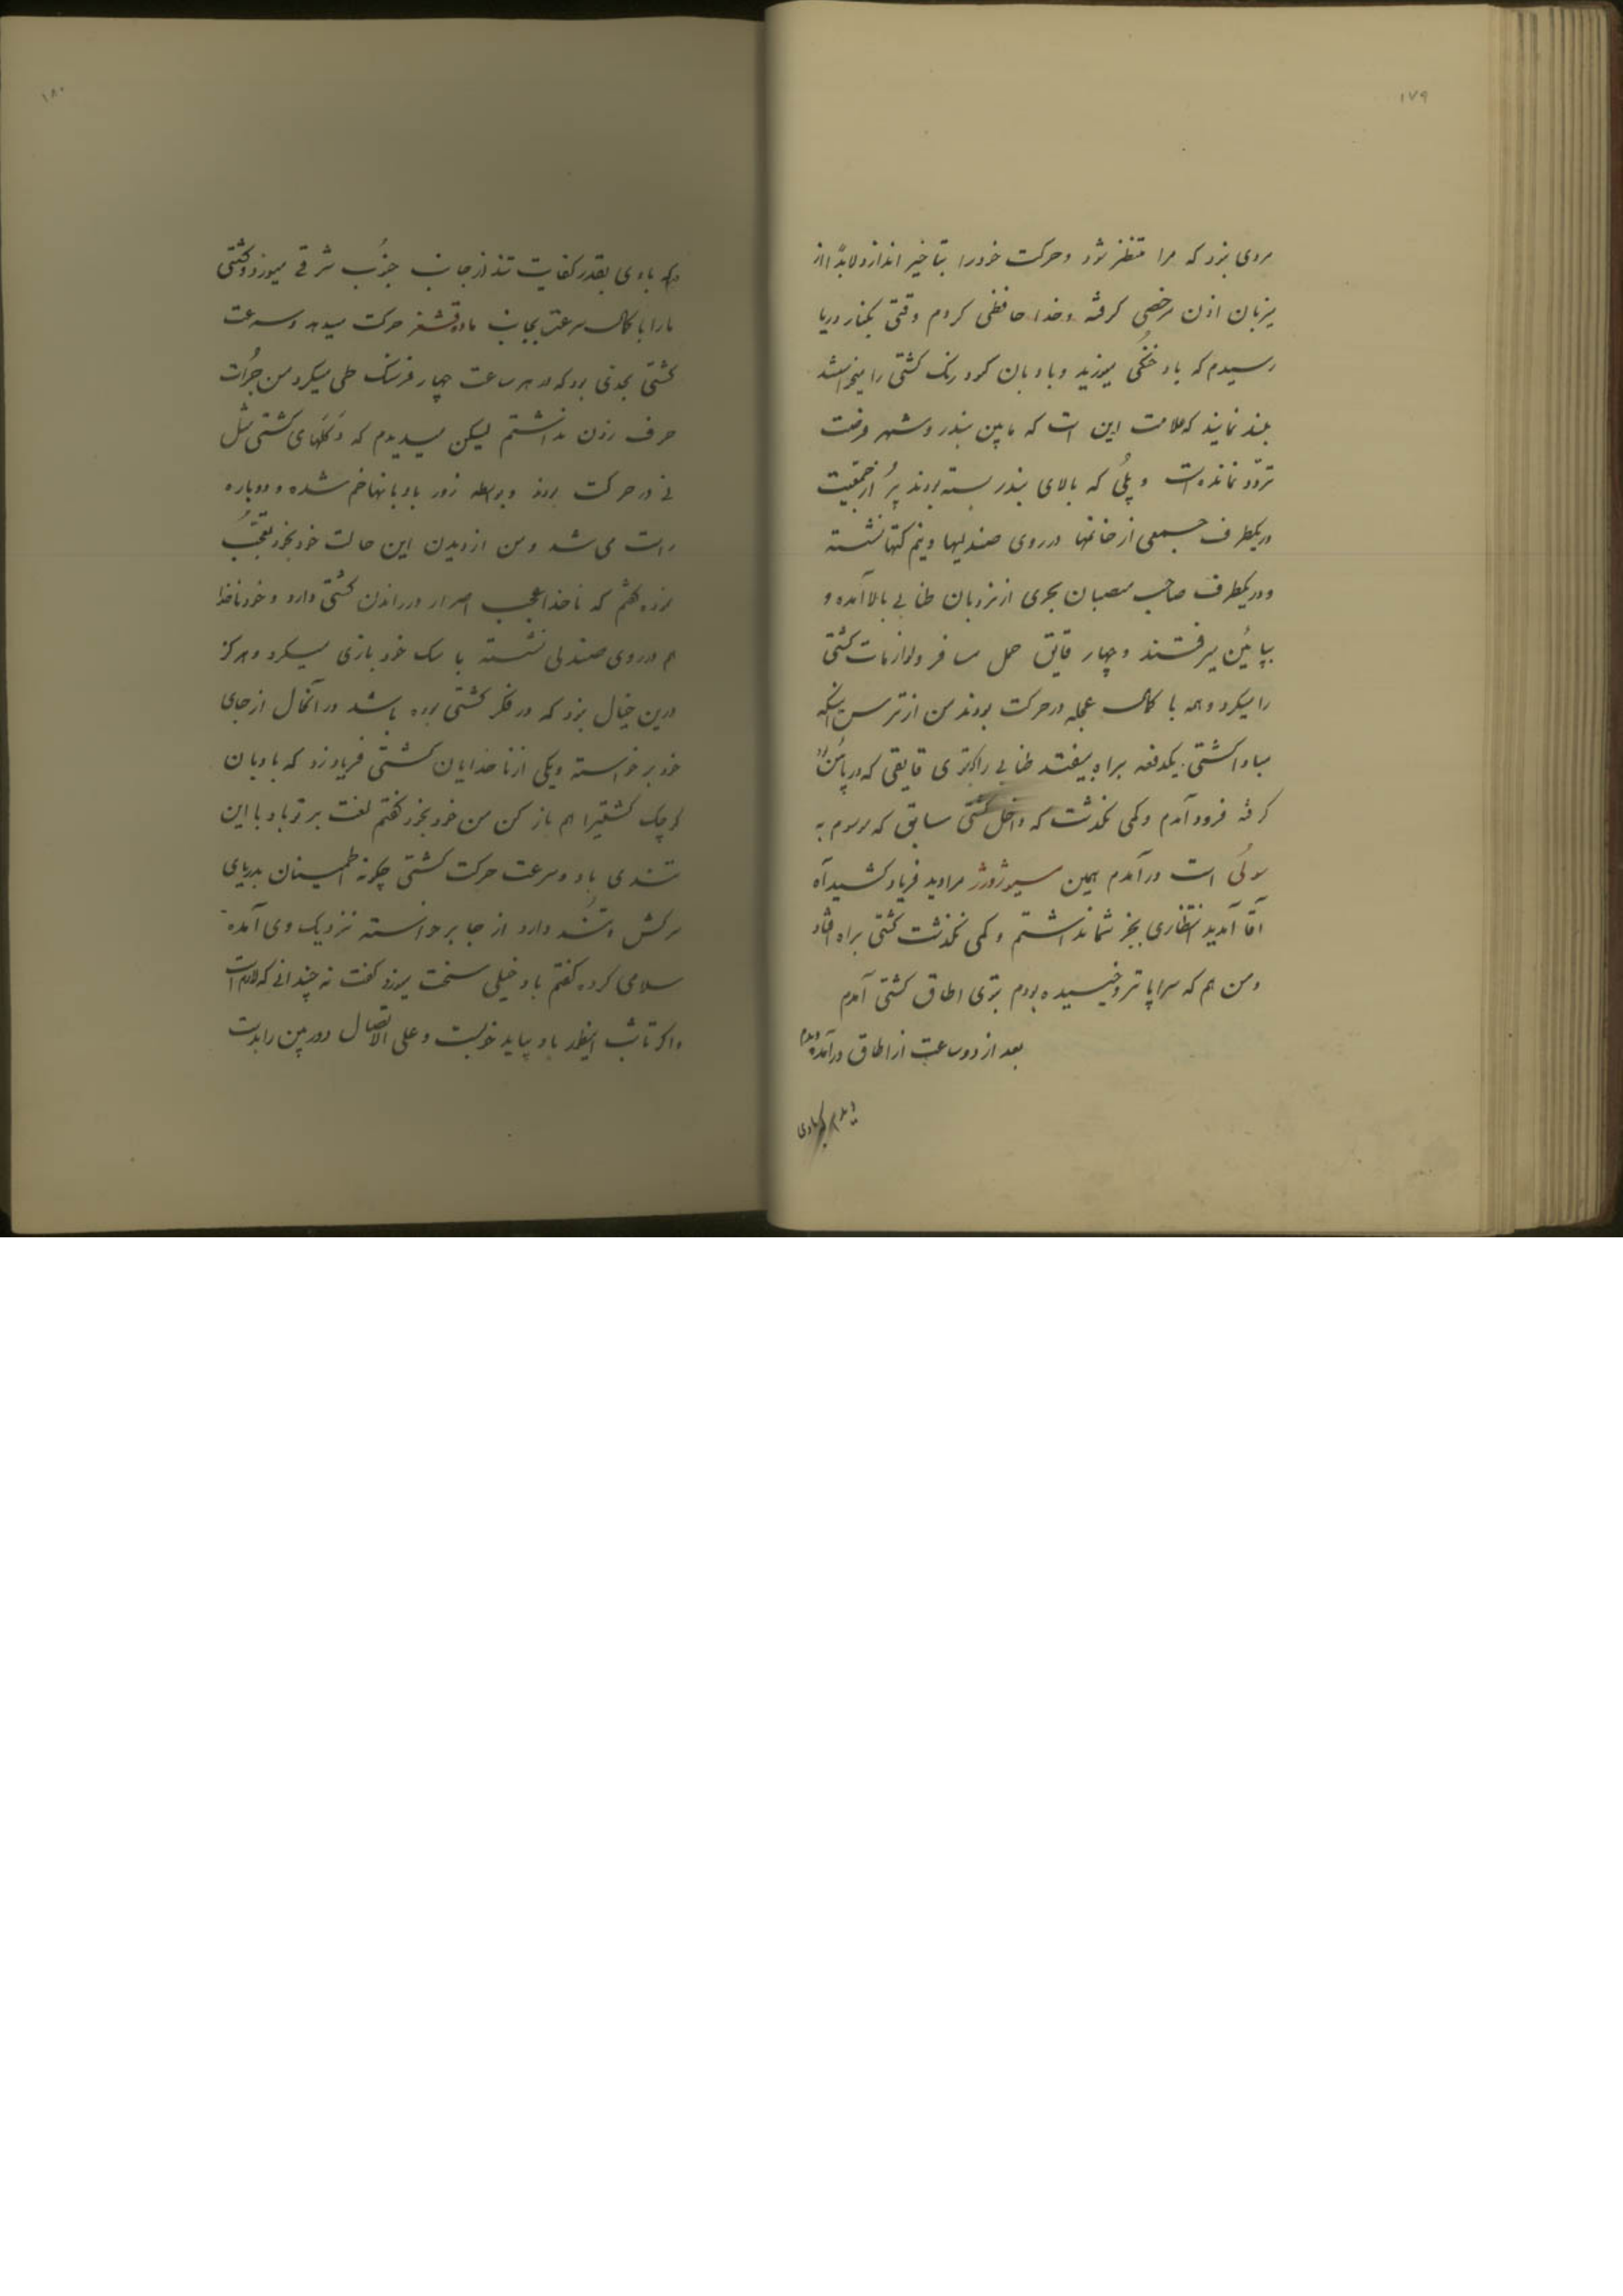 ۱۷۹
مردی نبود که مرا منتظر شود و حرکت خود را بتأخیر اندازد لابدّاً از
میزبان اذن مرخصی گرفته و خدا حافظی کردم وقتی بکنار دریا
رسیدم که باد خنُکی میوزید و بادبان کبود رنگ کشتی را میخواستند
بلند نمایند که علامت این است که مابین بندر و شهر فرصت
تردّد نمانده است و پلُی که بالای بندر بسته بودند پُر از جمعیت
در یکطرف جمعی از خانمها در روی صندلیها و نیم کتها نشسته
و در یکطرف صاحب منصبان بحری از نردبان طنابی بالا آمده و
بپائین میرفتند و چهار قایق حمل مسافر و لوازمات کشتی
را میکرد و همه با کمال عجله در حرکت بودند من از ترس اینکه
مبادا کشتی یکدفعه براه بیفتد طنابی را بتوی قایقی که در پائین بود
گرفته فرود آمدم و کمی نگذشت که داخل کشتی سابق که موسوم به
است در آمدم همین مسیو ژورژ مرا دید فریاد کشید آه
آقا آمدید انتظاری بجز شما نداشتم و کمی نگذشت کشتی براه افتاد
و من هم که سراپا تر و خیسیده بودم بتوی اطاق کشتی آمدم
بعد از دو ساعت از اطاق درآمده دیدم
دیدم که بادی
۱۸۰
که بادی بقدر کفایت تند از جانب جنُوب شرقی میوزد و کشتی
ما را با کمال سرعت بجانب حرکت میدهد و سرعت
کشتی بحدّی بود که در هر ساعت چهار فرسنگ طی میکرد من جرُأت
حرف زدن نداشتم لیکن میدیدم که دَکَلهای کشتی مثل
نی در حرکت بودند و بواسطه زور بادبانها خم شده و دوباره
راست می شد و من از دیدن این حالت خود بخود تعجّب
نموده گفتم که ناخدا عجب اصرار در راندن کشتی دارد و خود ناخدا
هم در روی صندلی نشسته با سگ خود بازی میکرد و هرگز
درین خیال نبود که در فکر کشتی بوده باشد در آنحال از جای
خود برخواسته و یکی از ناخدایان کشتی فریاد زد که بادبان
کوچک کشتیرا هم باز کن من خود بخود گفتم لعنت بر تو باد با این
تندی باد و سرعت حرکت کشتی چگونه اطمینان بدریای
سرکش و تُند دارد از جا برخواسته نزدیک وی آمده
سلامی کرده گفتم باد خیلی سخت میوزد گفت نه چندانی که لازم است
و اگر تا شب اینطور باد بیاید خوبست و علی الاتّصال دوربین را بدست